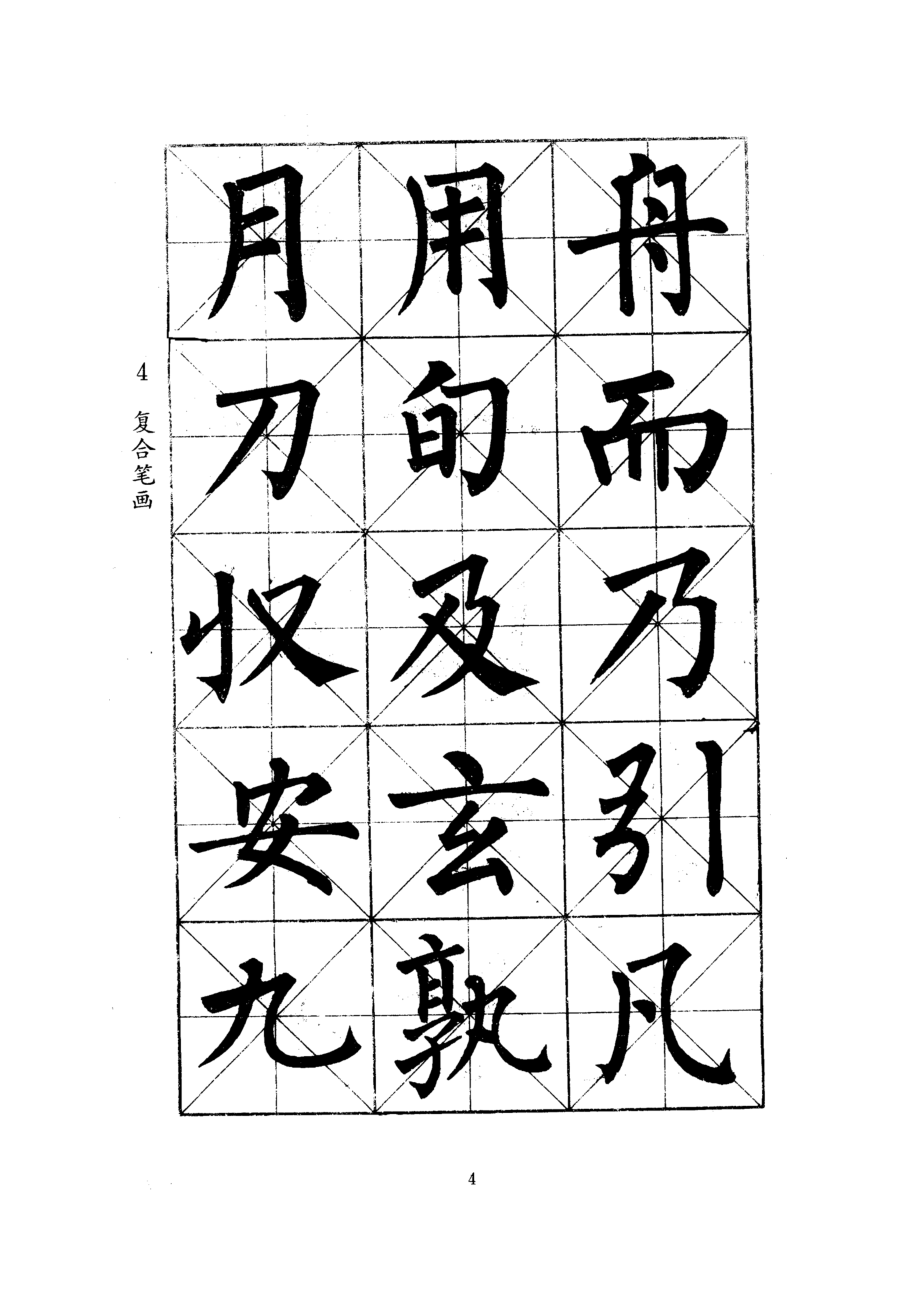 4 复合笔画
月 用 舟
刀 的 而
収 及 乃
安 玄 引
九 孰 凡
4